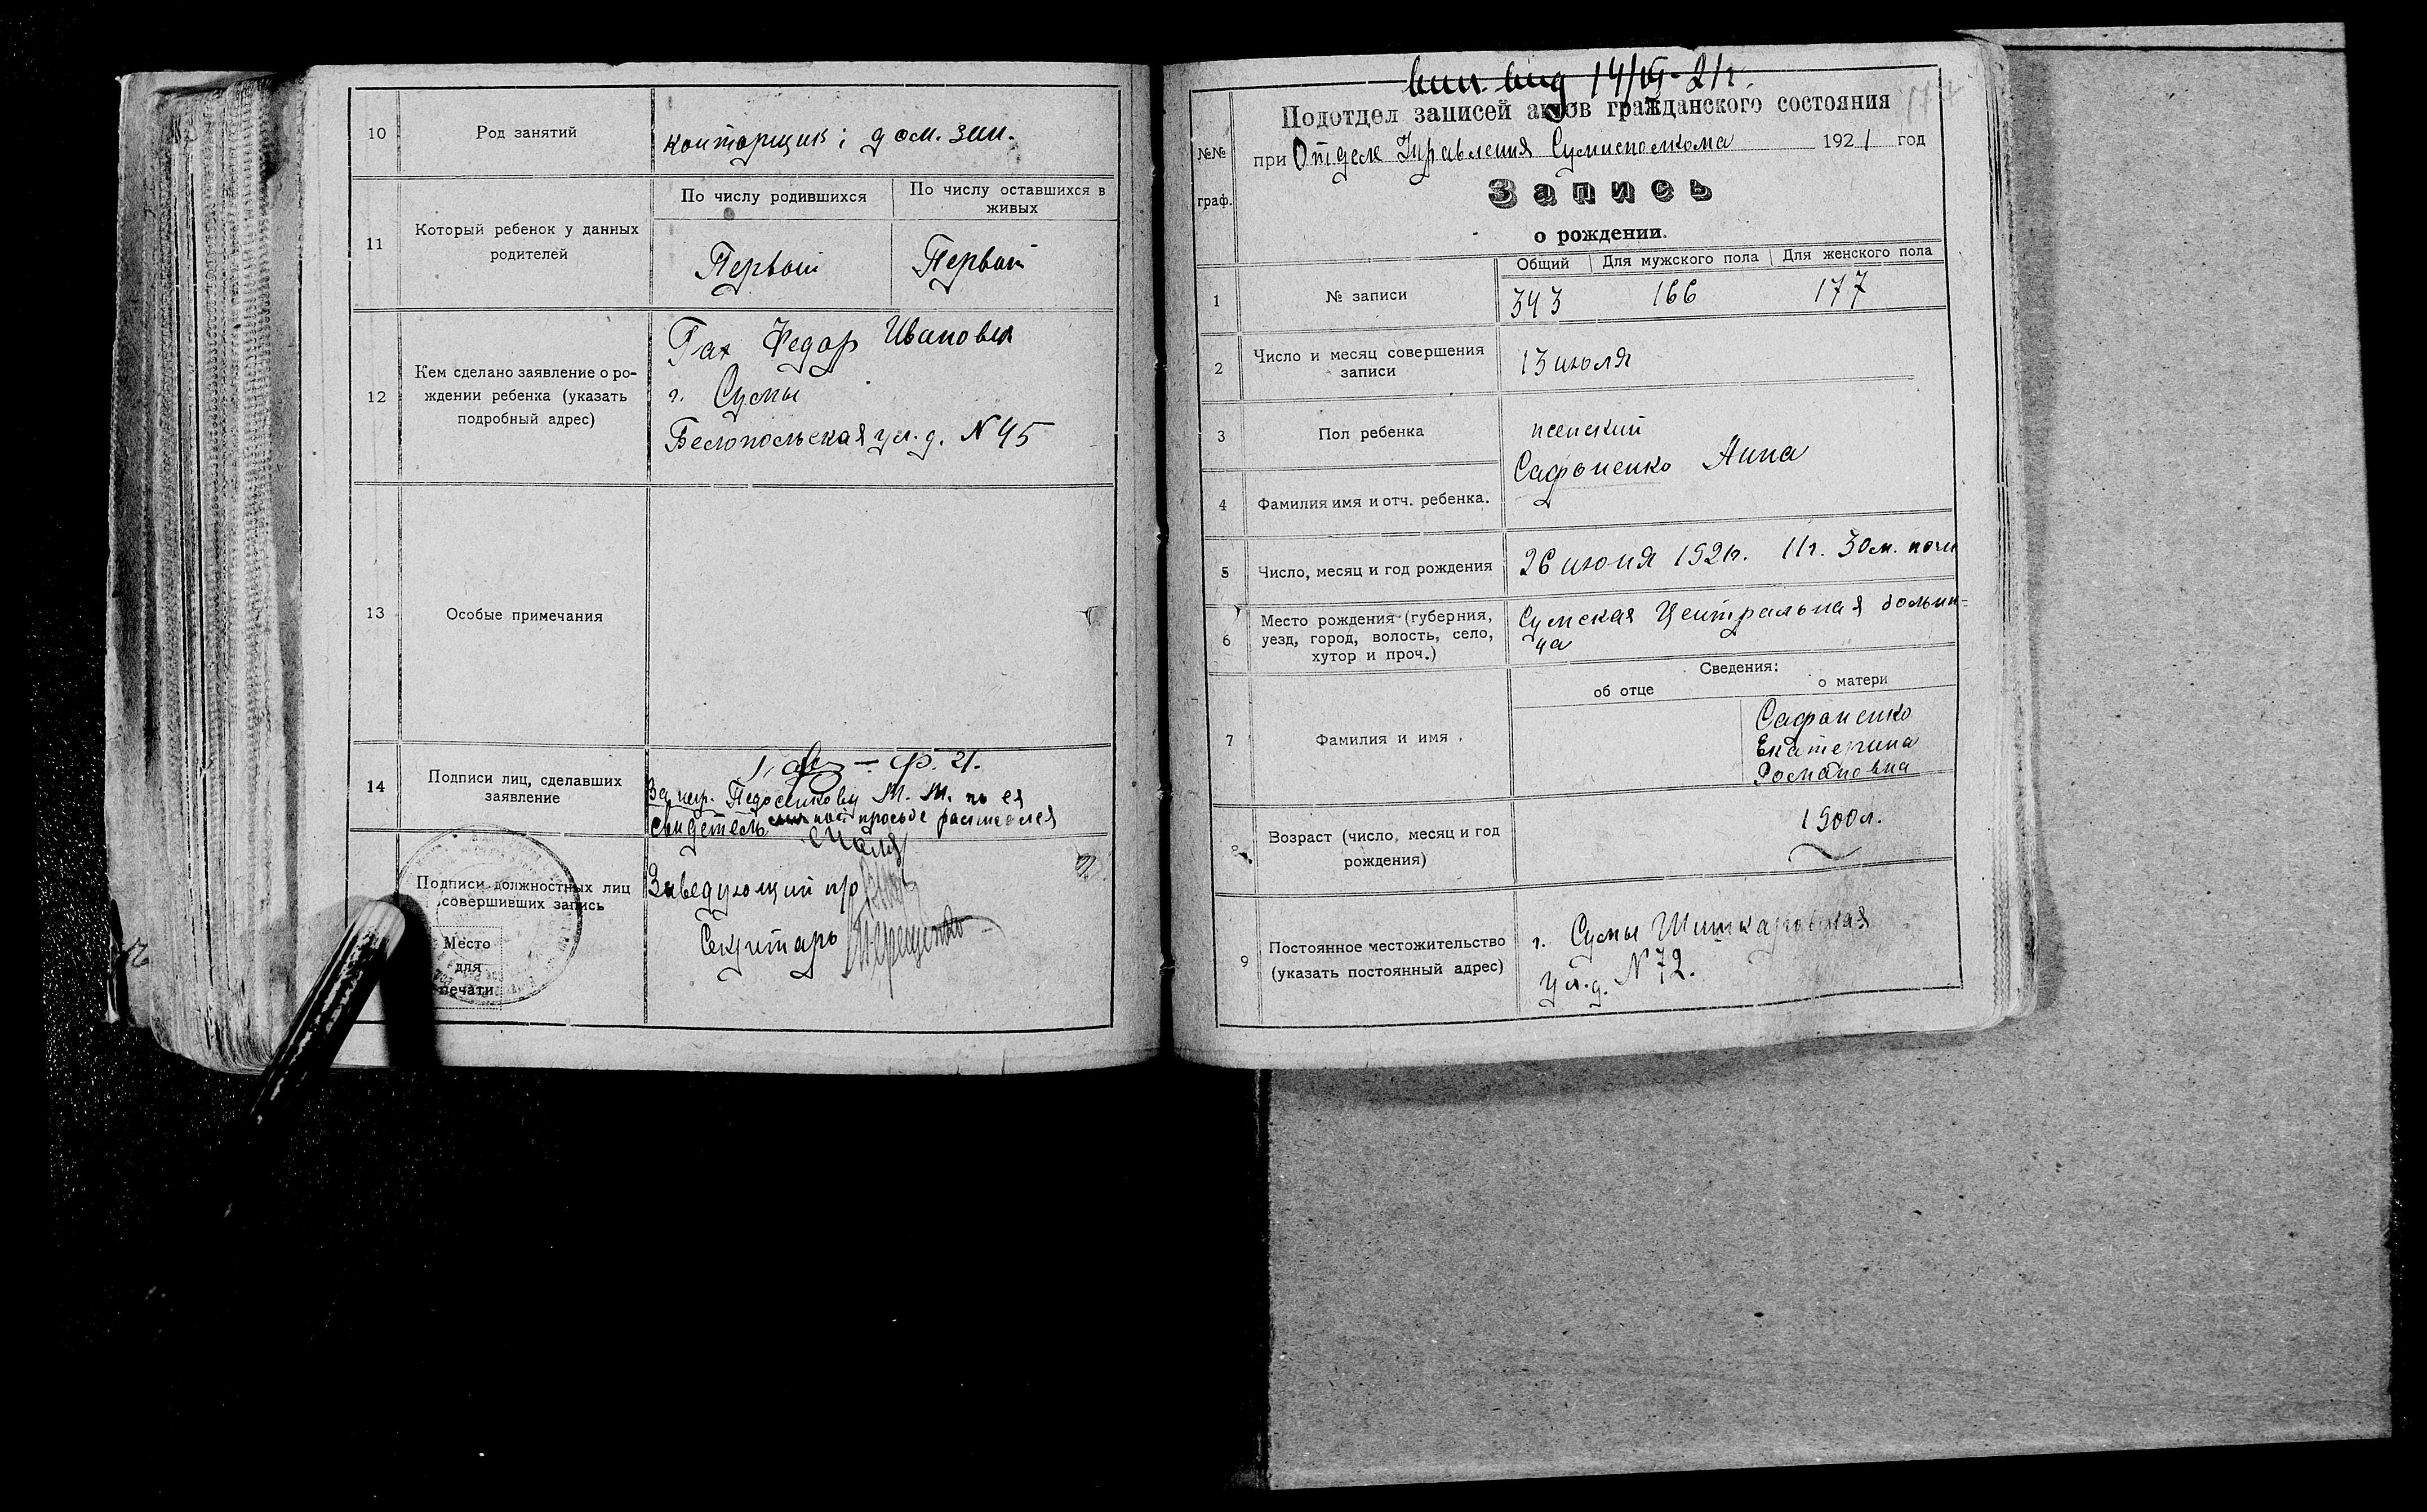 10
Род занятий
конторщик; дом. зан.
11
Который ребенок у данных
родителей
По числу родившихся
По числу оставшихся в
живых
Первый
Первый
12
Кем сделано заявление о ро-
ждении ребенка (указать
подробный адрес)
Гах Федор Иванович
г. Сумы
Белопольская ул. д. N 45
13
Особые примечания
14
Подписи лиц, сделавших
заявление
М. М. по ея
свидетель просьбе
Подписи должностных лиц
совершивших запись
Заведующий п/о
Секретарь
Место
для
печати
14/VII-21г.
Подотдел записей актов гражданского состояния
№№
граф.
при Отделе Управления Сумисполкома 1921 год
Запись
о рождении.
Общий
Для мужского пола
Для женского пола
1
№ записи
343
166
177
2
Число и месяц совершения
записи
13 июля
3
Пол ребенка
женский
4
Фамилия имя и отч. ребенка.
Сафоненко Анна
5
Число, месяц и год рождения
26 июня 1921г. 11ч. 30м. ночи
6
Место рождения (губерния,
уезд, город, волость, село,
хутор и проч.)
Сумская Центральная больни=
ца
Сведения:
об отце
о матери
7
Фамилия и имя
Сафоненко
Екатерина
Романовна
8
Возраст (число, месяц и год
рождения)
9
Постоянное местожительство
(указать постоянный адрес)
г. Сумы
ул. д. N 72.